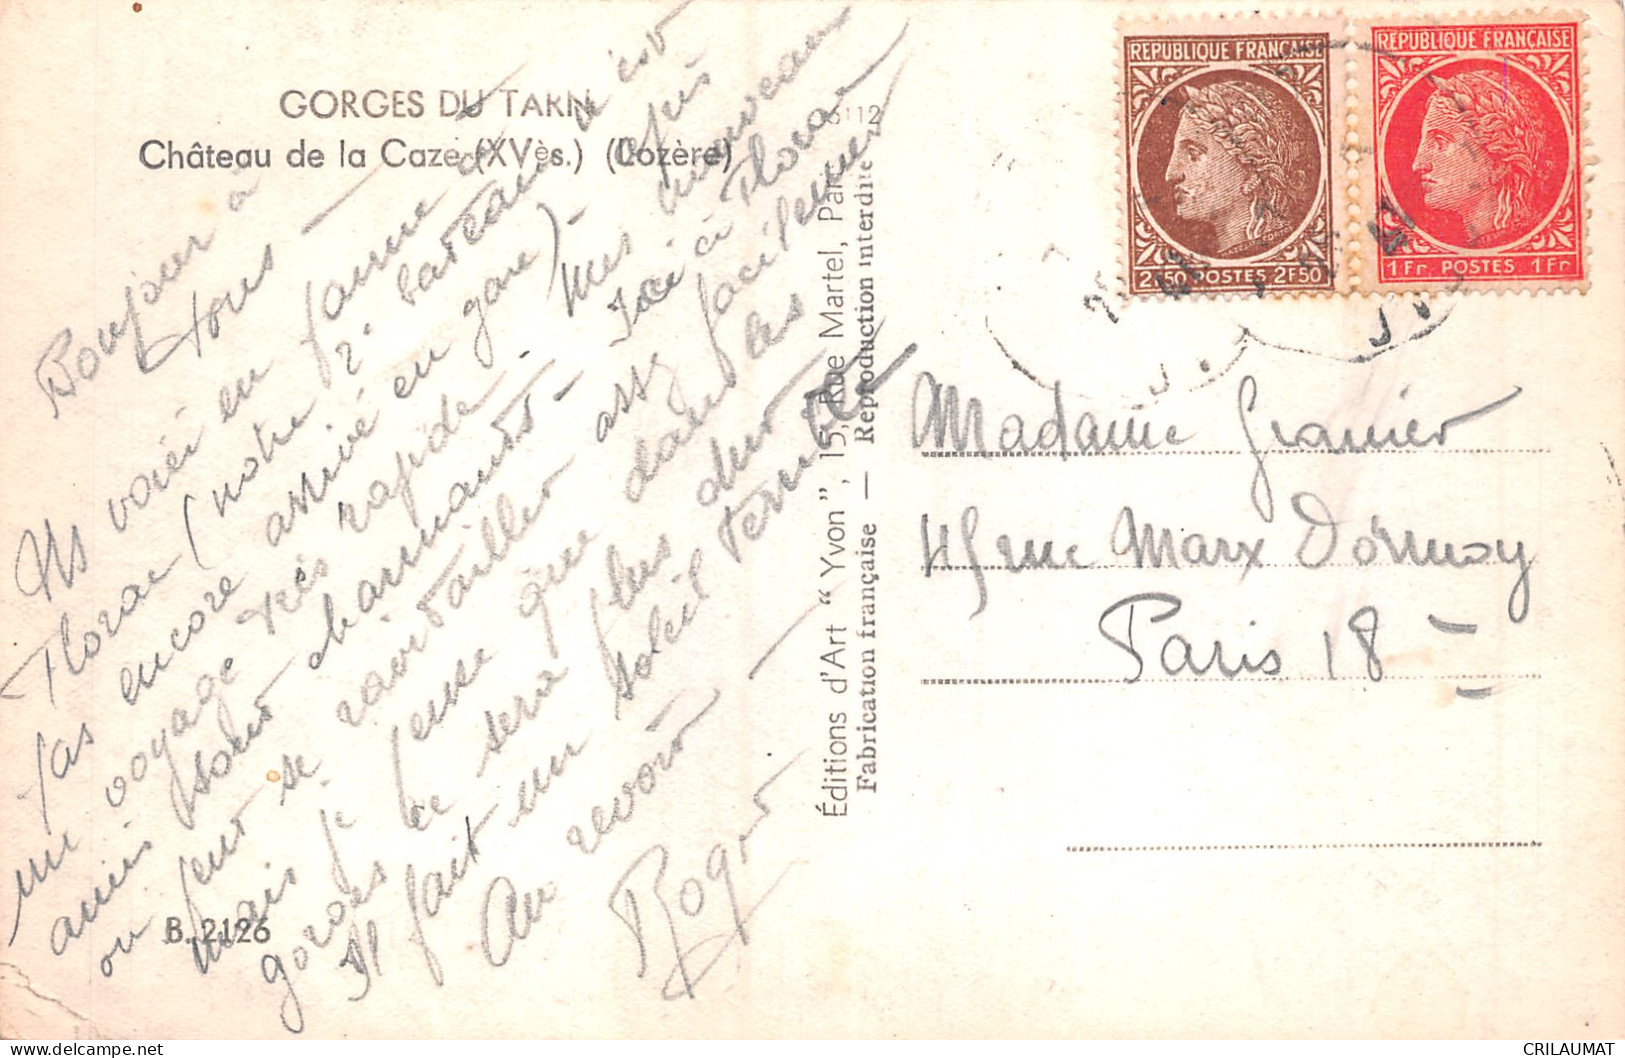 GORGES DU TARN
Château de la Caze (XVès.) (Lozère)
Bonjour à
tous —
Us voici en panne à
Florac (notre 2e bateau n'est
pas encore arrivé en gare) — depuis
un voyage très rapide. Mes nouveaux
amis sont charmants — Ici à Florac
on peut se ravitailler assez facilement
mais je pense que dans les
gorges ce sera plus dur
Il fait un soleil terrible
Au revoir —
Roger
B. 2126
Éditions d'Art "Yvon", 15, Rue Martel, Paris
Fabrication française — Reproduction interdite
112
REPUBLIQUE FRANÇAISE
2F50 POSTES 2F50
REPUBLIQUE FRANÇAISE
1Fr POSTES 1Fr
Madame Granier
45 rue Marx Dormoy
Paris 18
CRILAUMAT